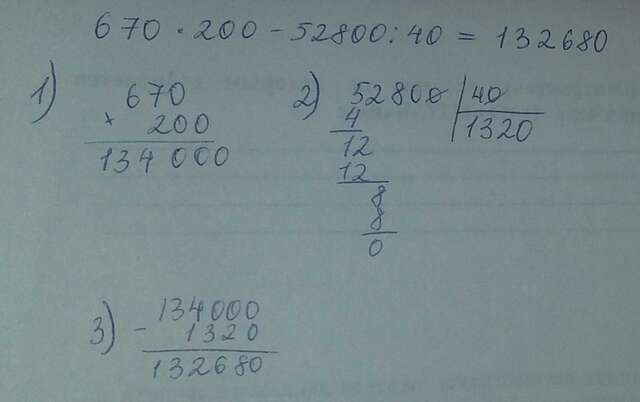 670 · 200 - 52800 : 40 = 132680
1)
670
× 200
134 000
2) 52800 | 40
1320
4
12
12
8
8
0
3)
134000
- 1320
132680